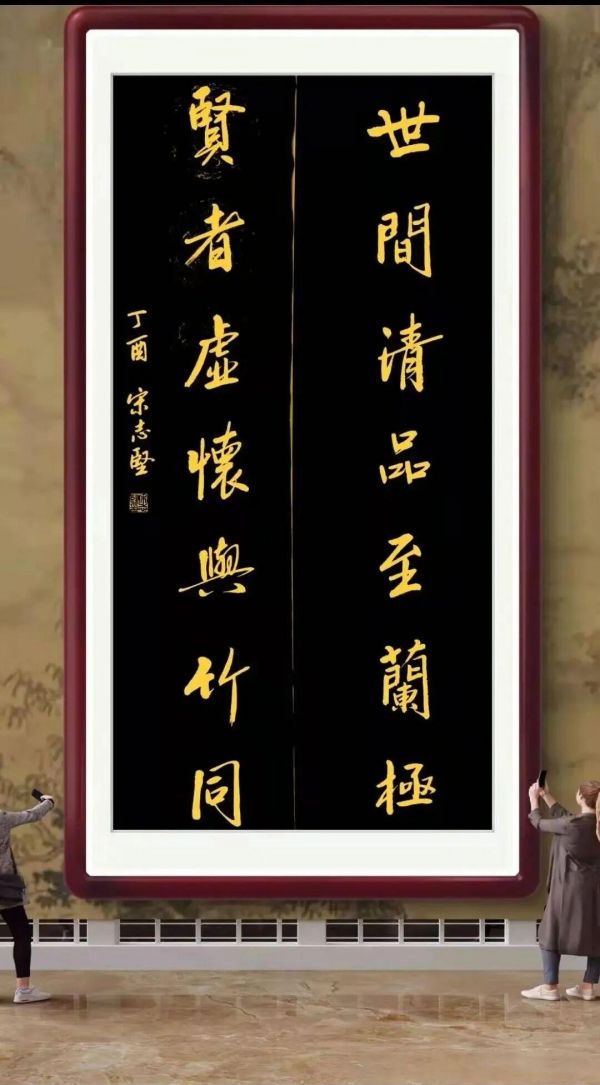 世間清品至蘭極
賢者虛懷與竹同
丁酉 宋志堅